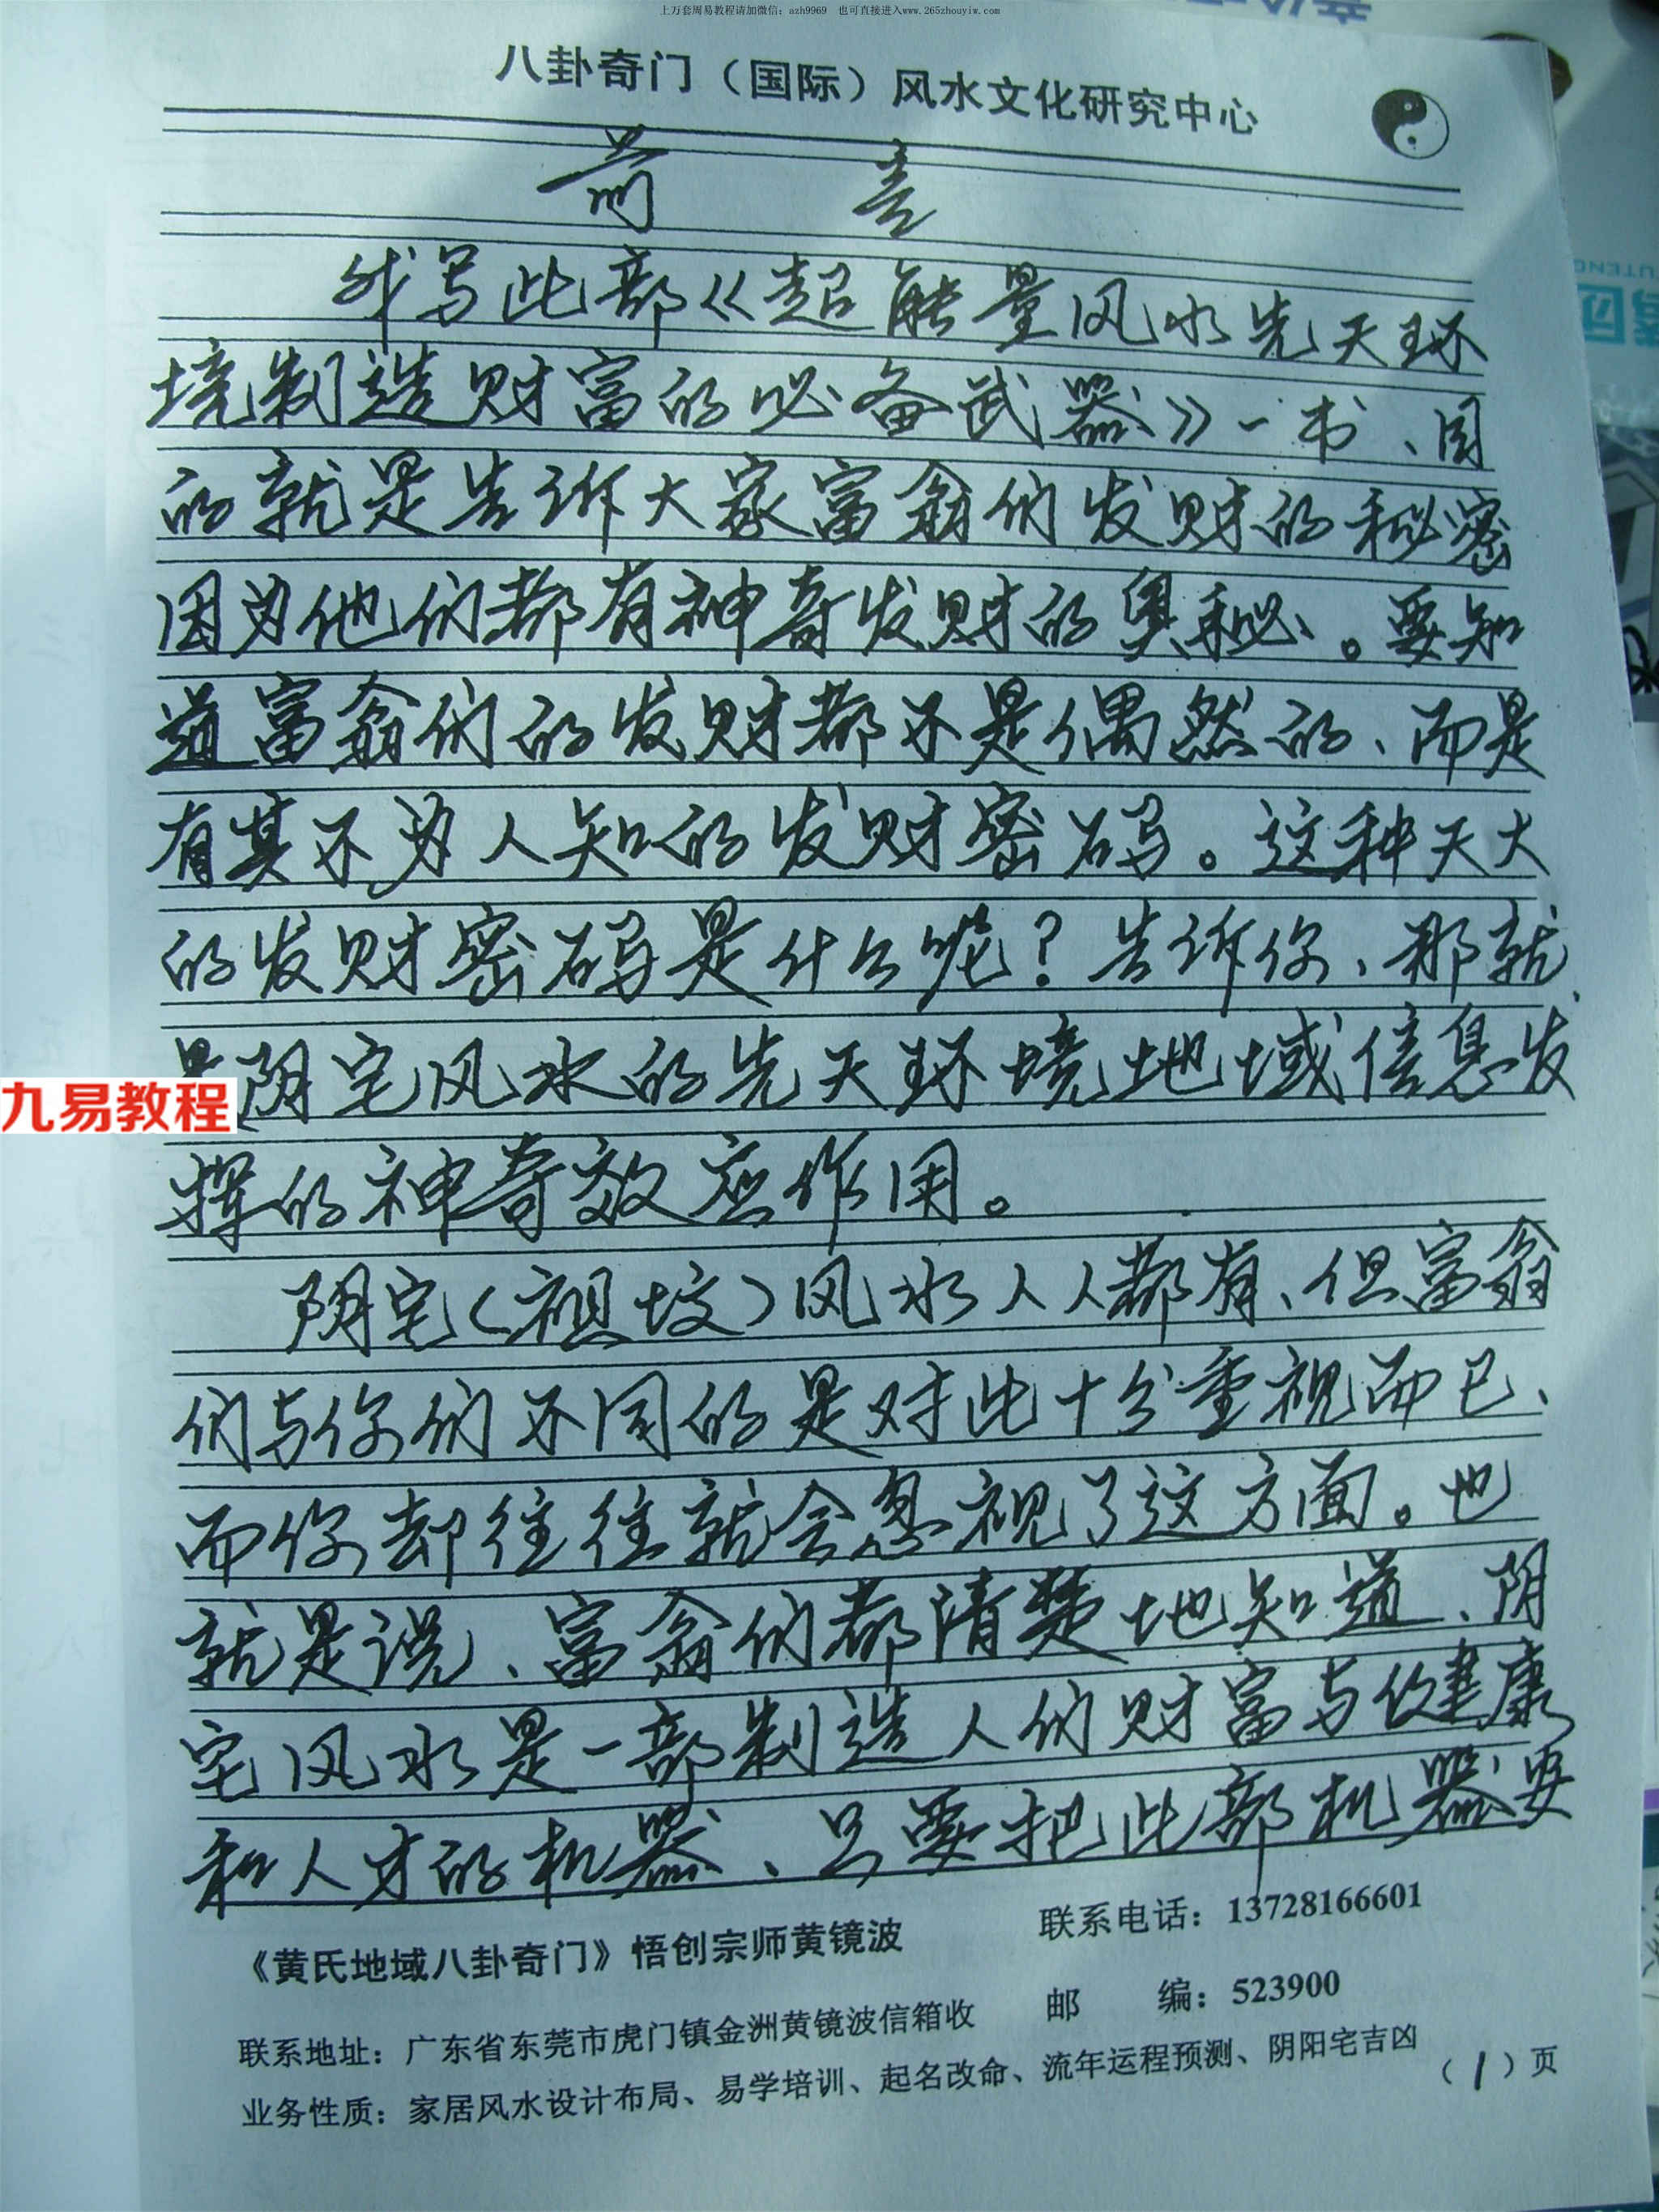 上万套周易教程请加微信：azh9969　也可直接进入www.265zhouyiw.com
八卦奇门（国际）风水文化研究中心
前　言
我写此部《超能量风水先天环
境制造财富的必备武器》一书、目
的就是告诉大家富翁们发财的秘密
因为他们都有神奇发财的奥秘。要知
道富翁们的发财都不是偶然的、而是
有其不为人知的发财密码。这种天大
的发财密码是什么呢？告诉你、那就
是阴宅风水的先天环境地域信息发
挥的神奇效应作用。
阴宅（祖坟）风水人人都有、但富翁
们与你们不同的是对此十分重视而已、
而你却往往就会忽视了这方面。也
就是说、富翁们都清楚地知道、阴
宅风水是一部制造人们财富与健康
和人才的机器、只要把此部机器安
九易教程
《黄氏地域八卦奇门》悟创宗师黄镜波　联系电话：13728166601
联系地址：广东省东莞市虎门镇金洲黄镜波信箱收　邮　编：523900
业务性质：家居风水设计布局、易学培训、起名改命、流年运程预测、阴阳宅吉凶　（1）页